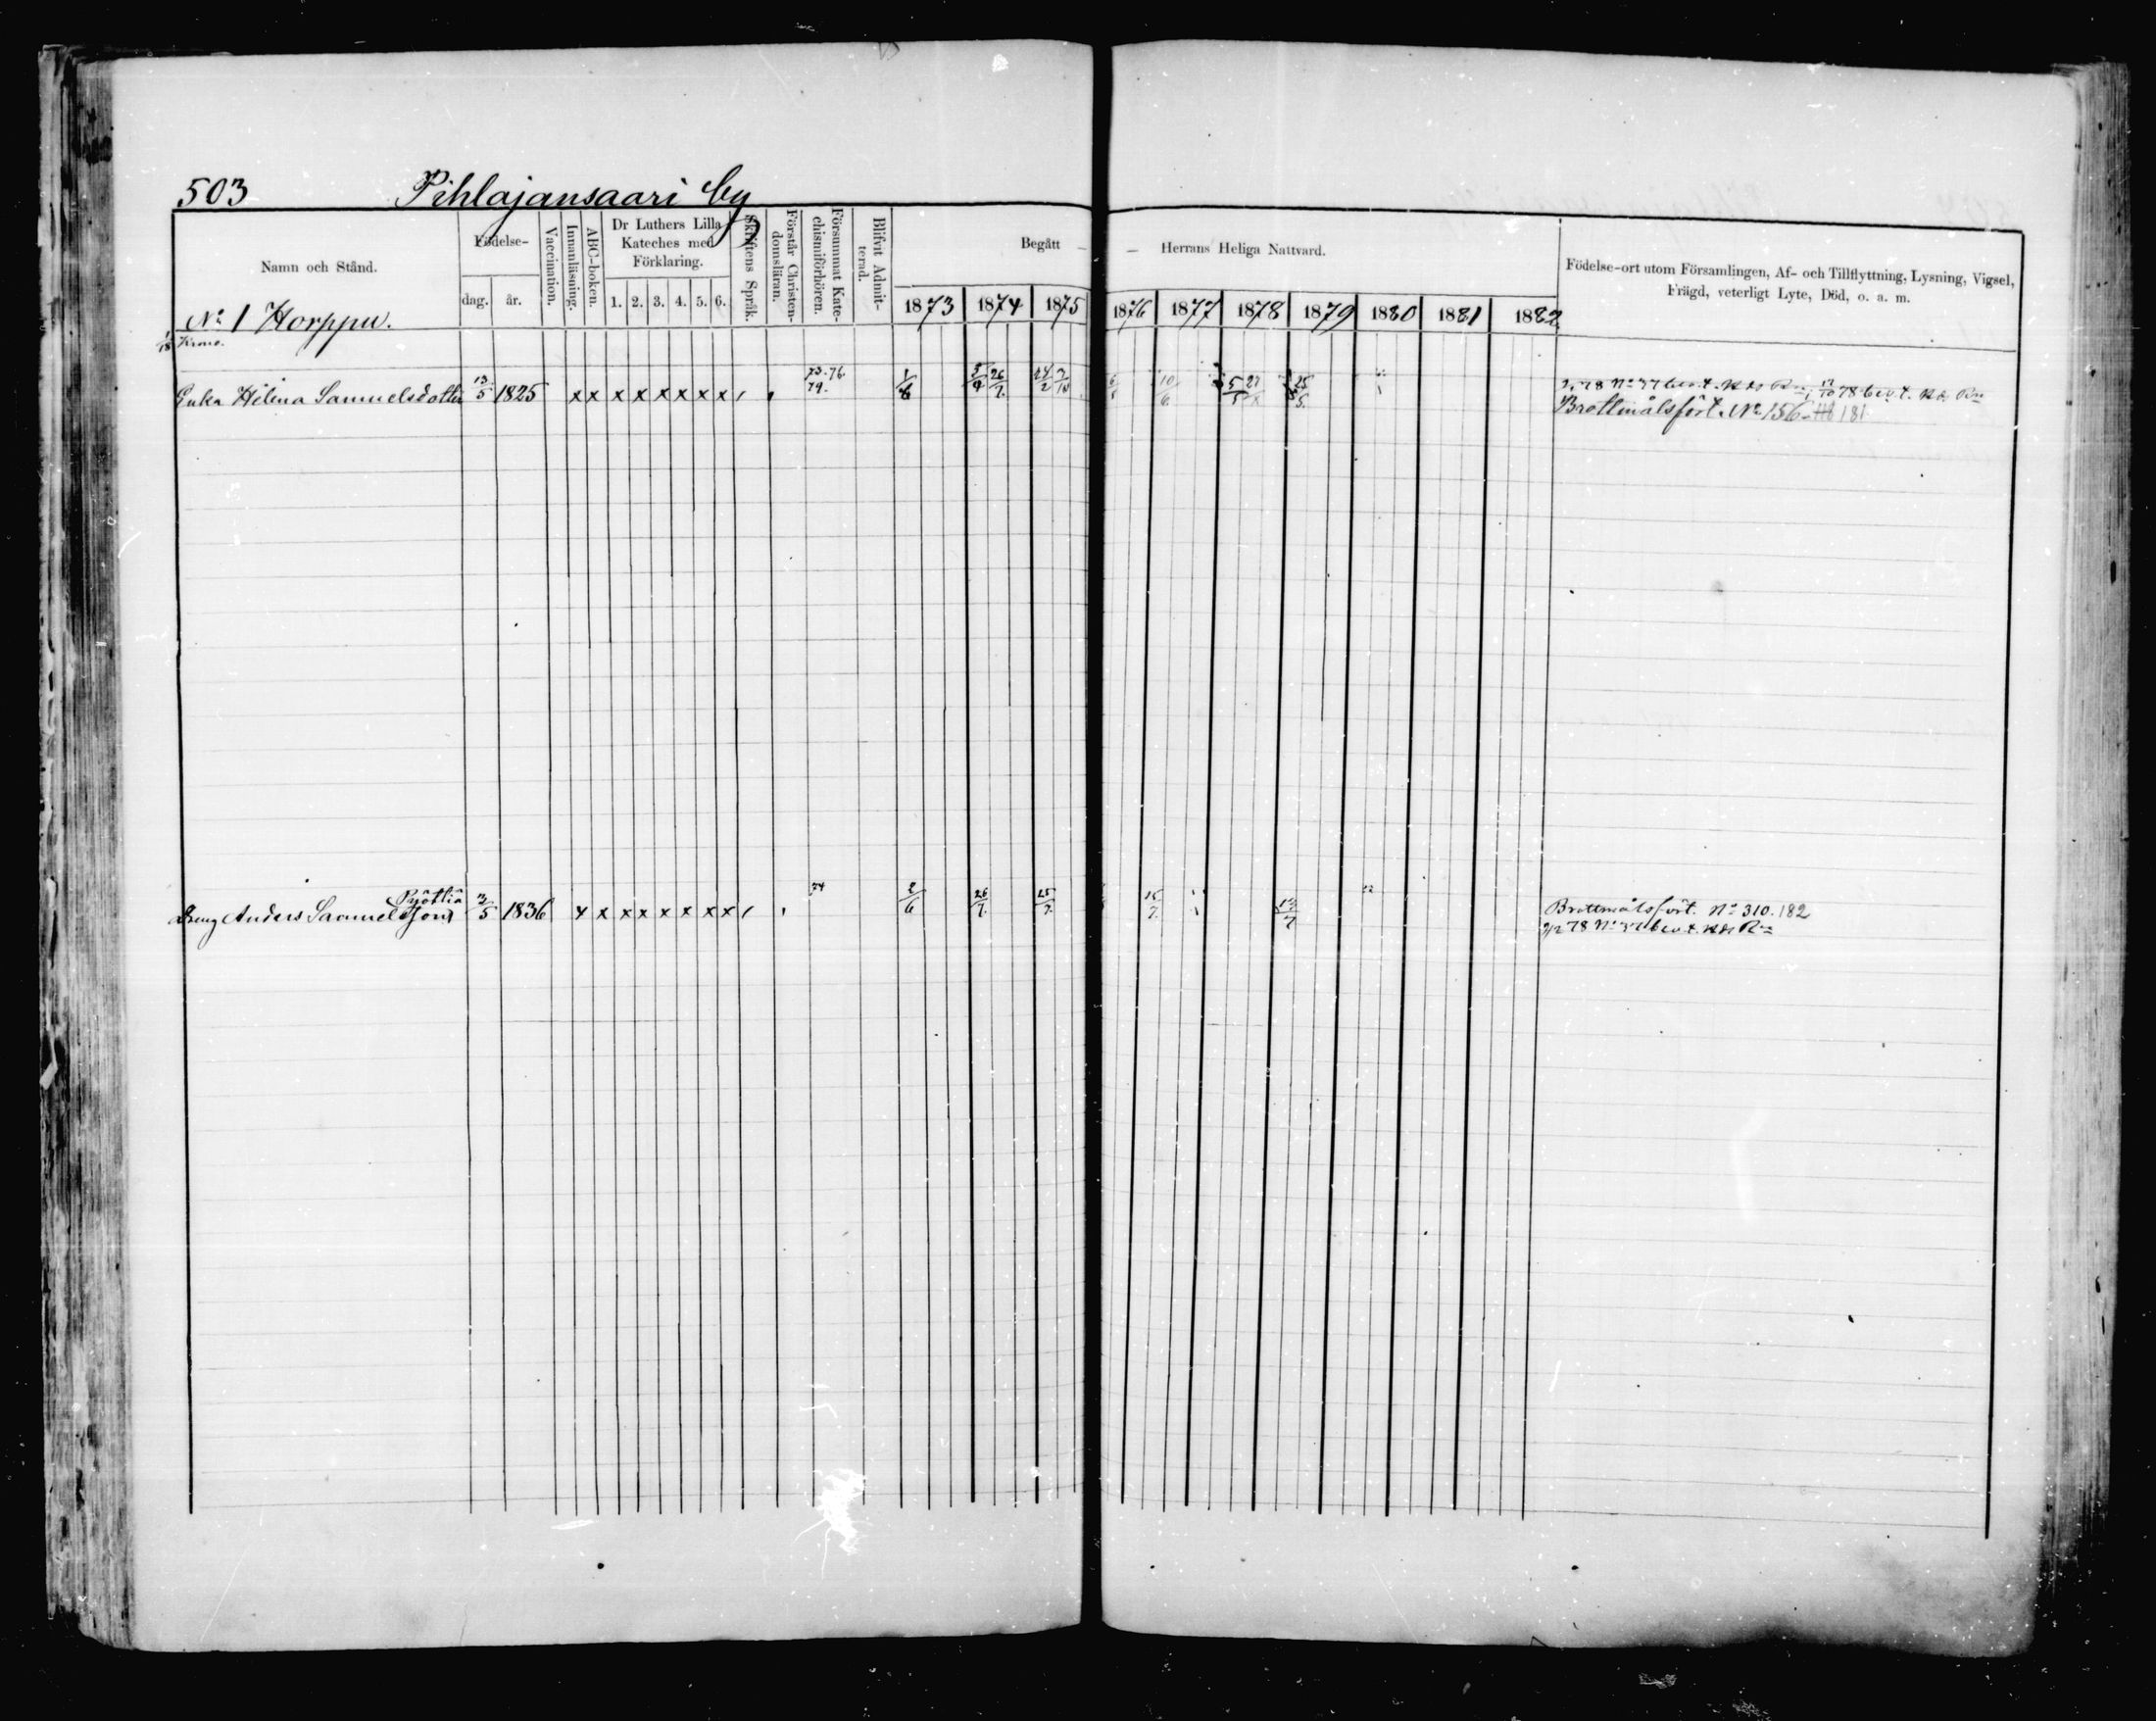 503 Pihlajansaari by
Namn och Stånd.
Födelse-
dag. år.
Vaccination.
Innanläsning.
ABC-boken.
Dr Luthers Lilla
Kateches med
Förklaring.
1. 2. 3. 4. 5. 6.
Skriftens Språk.
Förstår Christen-
domsläran.
Försummat Kate-
chismiförhören.
Blifvit Admit-
terad.
Begått — — Herrans Heliga Nattvard.
1873 1874 1875 1876 1877 1878 1879 1880 1881 1882
Födelse-ort utom Församlingen, Af- och Tillflyttning, Lysning, Vigsel,
Frägd, veterligt Lyte, Död, o. a. m.
No 1 Horppu.
73. 76.
79.
Enka Helena Samuelsdotter 13/5 1825 x x x x x x x x 1/6 26/7 10/6 25/5
Brottmålsfört. No 156 181
74
Pyöttiä
Dreng Anders Samuelsson 3/5 1836 x x x x x x x x 2/6 26/7 25/7 15/7 13/7 Brottmålsfört. No 310. 182